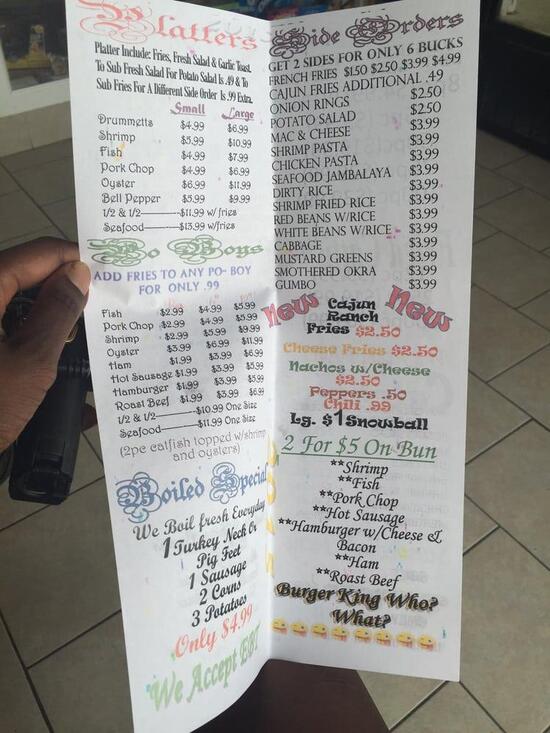 Platters
Platter Include: Fries, Fresh Salad & Garlic Toast.
To Sub Fresh Salad For Potato Salad Is .49 & To
Sub Fries For A Different Side Order Is .99 Extra.
Small Large
Drummetts $4.99 $6.99
Shrimp $5.99 $10.99
Fish $4.99 $7.99
Pork Chop $4.99 $6.99
Oyster $6.99 $11.99
Bell Pepper $5.99 $9.99
1/2 & 1/2----------$11.99 w/fries
Seafood----------$13.99 w/fries
Po Boys
ADD FRIES TO ANY PO- BOY
FOR ONLY .99
Fish $2.99 $4.99 $5.99
Pork Chop $2.99 $4.99 $5.99
Shrimp $2.99 $5.99 $9.99
Oyster $3.99 $6.99 $11.99
Ham $1.99 $3.99 $5.99
Hot Sausage $1.99 $3.99 $5.99
Hamburger $1.99 $3.99 $5.99
Roast Beef $1.99 $3.99 $6.99
1/2 & 1/2----------$10.99 One Size
Seafood----------$11.99 One Size
(2pc catfish topped w/shrimp
and oysters)
Boiled Special
We Boil fresh Everyday
1 Turkey Neck Or
Pig Feet
1 Sausage
2 Corns
3 Potatoes
Only $4.99
We Accept EBT
Side Orders
GET 2 SIDES FOR ONLY 6 BUCKS
FRENCH FRIES $1.50 $2.50 $3.99 $4.99
CAJUN FRIES ADDITIONAL .49
ONION RINGS $2.50
POTATO SALAD $2.50
MAC & CHEESE $3.99
SHRIMP PASTA $3.99
CHICKEN PASTA $3.99
SEAFOOD JAMBALAYA $3.99
DIRTY RICE $3.99
SHRIMP FRIED RICE $3.99
RED BEANS W/RICE $3.99
WHITE BEANS W/RICE $3.99
CABBAGE $3.99
MUSTARD GREENS $3.99
SMOTHERED OKRA $3.99
GUMBO $3.99
New Cajun New
Ranch
Fries $2.50
Cheese Fries $2.50
Nachos w/Cheese
$2.50
Peppers .50
Chili .99
Lg. $1 Snowball
2 For $5 On Bun
**Shrimp
**Fish
**Pork Chop
**Hot Sausage
**Hamburger w/Cheese &
Bacon
**Ham
**Roast Beef
Burger King Who?
What?